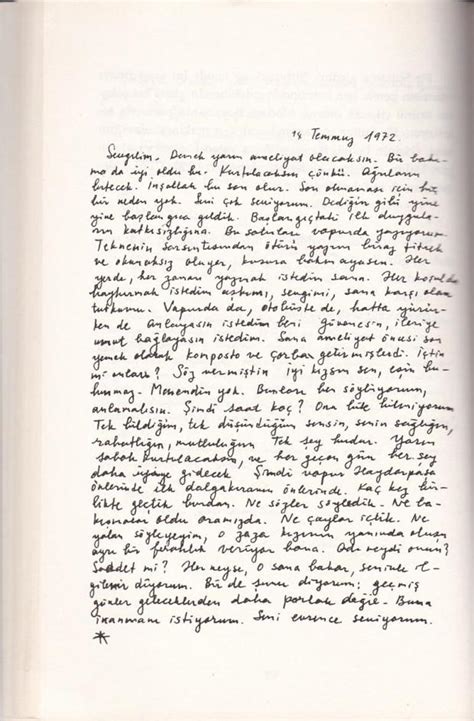 14 Temmuz 1972.
Sevgilim, Demek yarın ameliyat olacaksın. Bir bakı-
ma da iyi oldu bu. Kurtulacaksın çünkü. Ağrıların
bitecek. İnşallah bu son olur. Son olmaması için hiç
bir neden yok. Seni çok seviyorum. Dediğin gibi yine
yine başlangıca geldik. Başlangıçtaki ilk duygula-
rın katkısızlığına. Bu satırları vapurda yazıyorum.
Teknenin sarsıntısından ötürü yazım biraz titrek
ve okunaksız oluyor, kusura bakmayasın. Her
yerde, her zaman yazmak istedim sana. Her koşulda
haykırmak istedim aşkımı, sevgimi, sana karşı olan
tutkumu. Vapurda da, otobüste de, hatta yürür-
ken de. Anlayasın istedim beni güvenesin, ileriye
umut bağlayasın istedim. Sana ameliyat öncesi son
yemek olarak komposto ve çorba getirmişlerdi. İçtin
mi onları? Söz vermiştin iyi kızsın sen,
Mendilin yok. Bunları hep söylüyorum,
anlamalısın. Şimdi saat kaç? Onu bile bilmiyorum
Tek bildiğim, tek düşündüğüm sensin, senin sağlığın,
rahatlığın, mutluluğun Tek şey budur. Yarın
sabah kurtulacaksın, ve her geçen gün her şey
daha iyiye gidecek Şimdi vapur Haydarpaşa
önlerinde ilk dalgakıranın önlerinde. Kaç kez bir-
likte geçtik burdan. Ne sözler söyledik. Ne ba-
kışmalar oldu aramızda. Ne çaylar içtik. Ne
yalan söyleyeyim, o zaza kızının yanında oluşu
ayrı bir ferahlık veriyor bana. Adı neydi onun?
Saadet mi? Her neyse, o sana bakar, seninle il-
gilenir diyorum. Bir de şunu diyorum; geçmiş
günler geleceklerden daha parlak değil. Buna
inanmanı istiyorum. Seni evrence seviyorum.
*